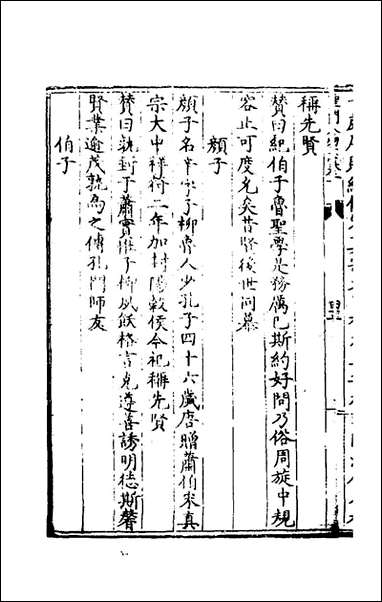 稱先賢
贊曰紀伯子魯聖學是務厲已斯約好問乃俗周旋中規
容止可度允矣昔賢後世同慕
顏子
顏子名辛字子柳魯人少孔子四十六歲唐贈蕭伯宋真
宗大中祥符二年加封陽穀侯今祀稱先賢
贊曰執封于蕭實惟子柳夙飫格言克遵善誘明德斯馨
賢業逾茂孰為之傳孔門師友
伯子